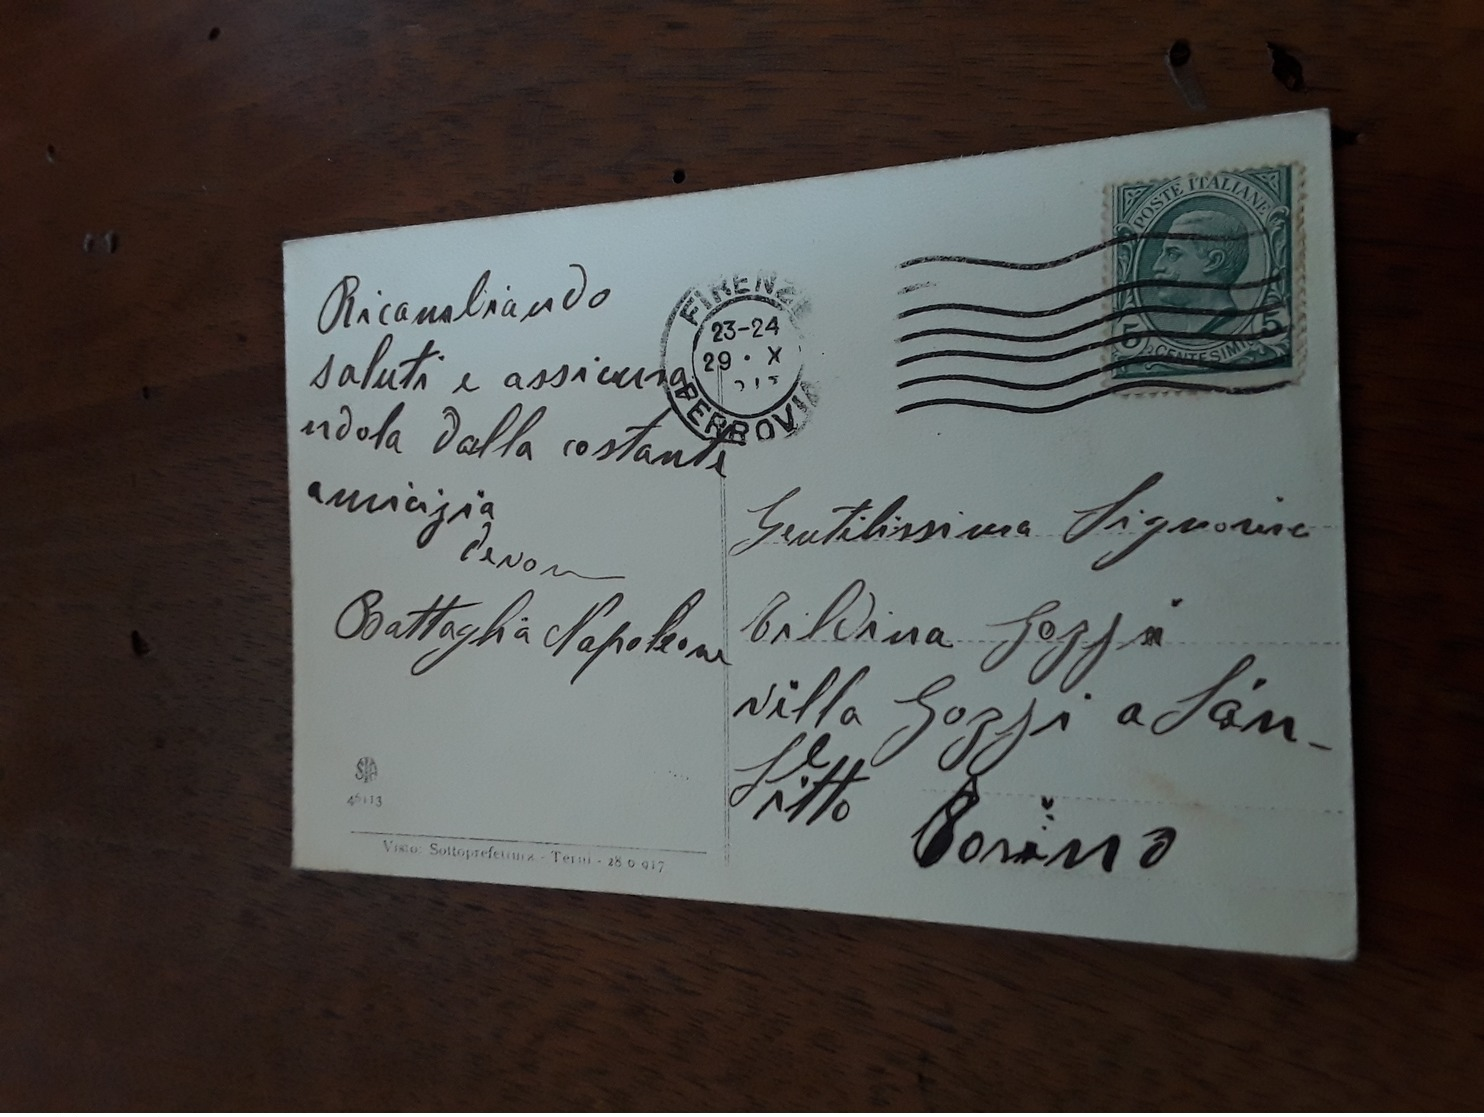 Ricambiando
saluti e assicura
ndola dalla costante
amicizia
Devom
Battaglia Napoleone
FIRENZE
23-24
29 · X
FERROVIA
POSTE ITALIANE
5 5
CENTESIMI
Gentilissima Signorina
Tildina Gozzi
villa Gozzi a San-
Sitto
Torino
STA
46113
Visto: Sottoprefettura - Terni - 28 9 917